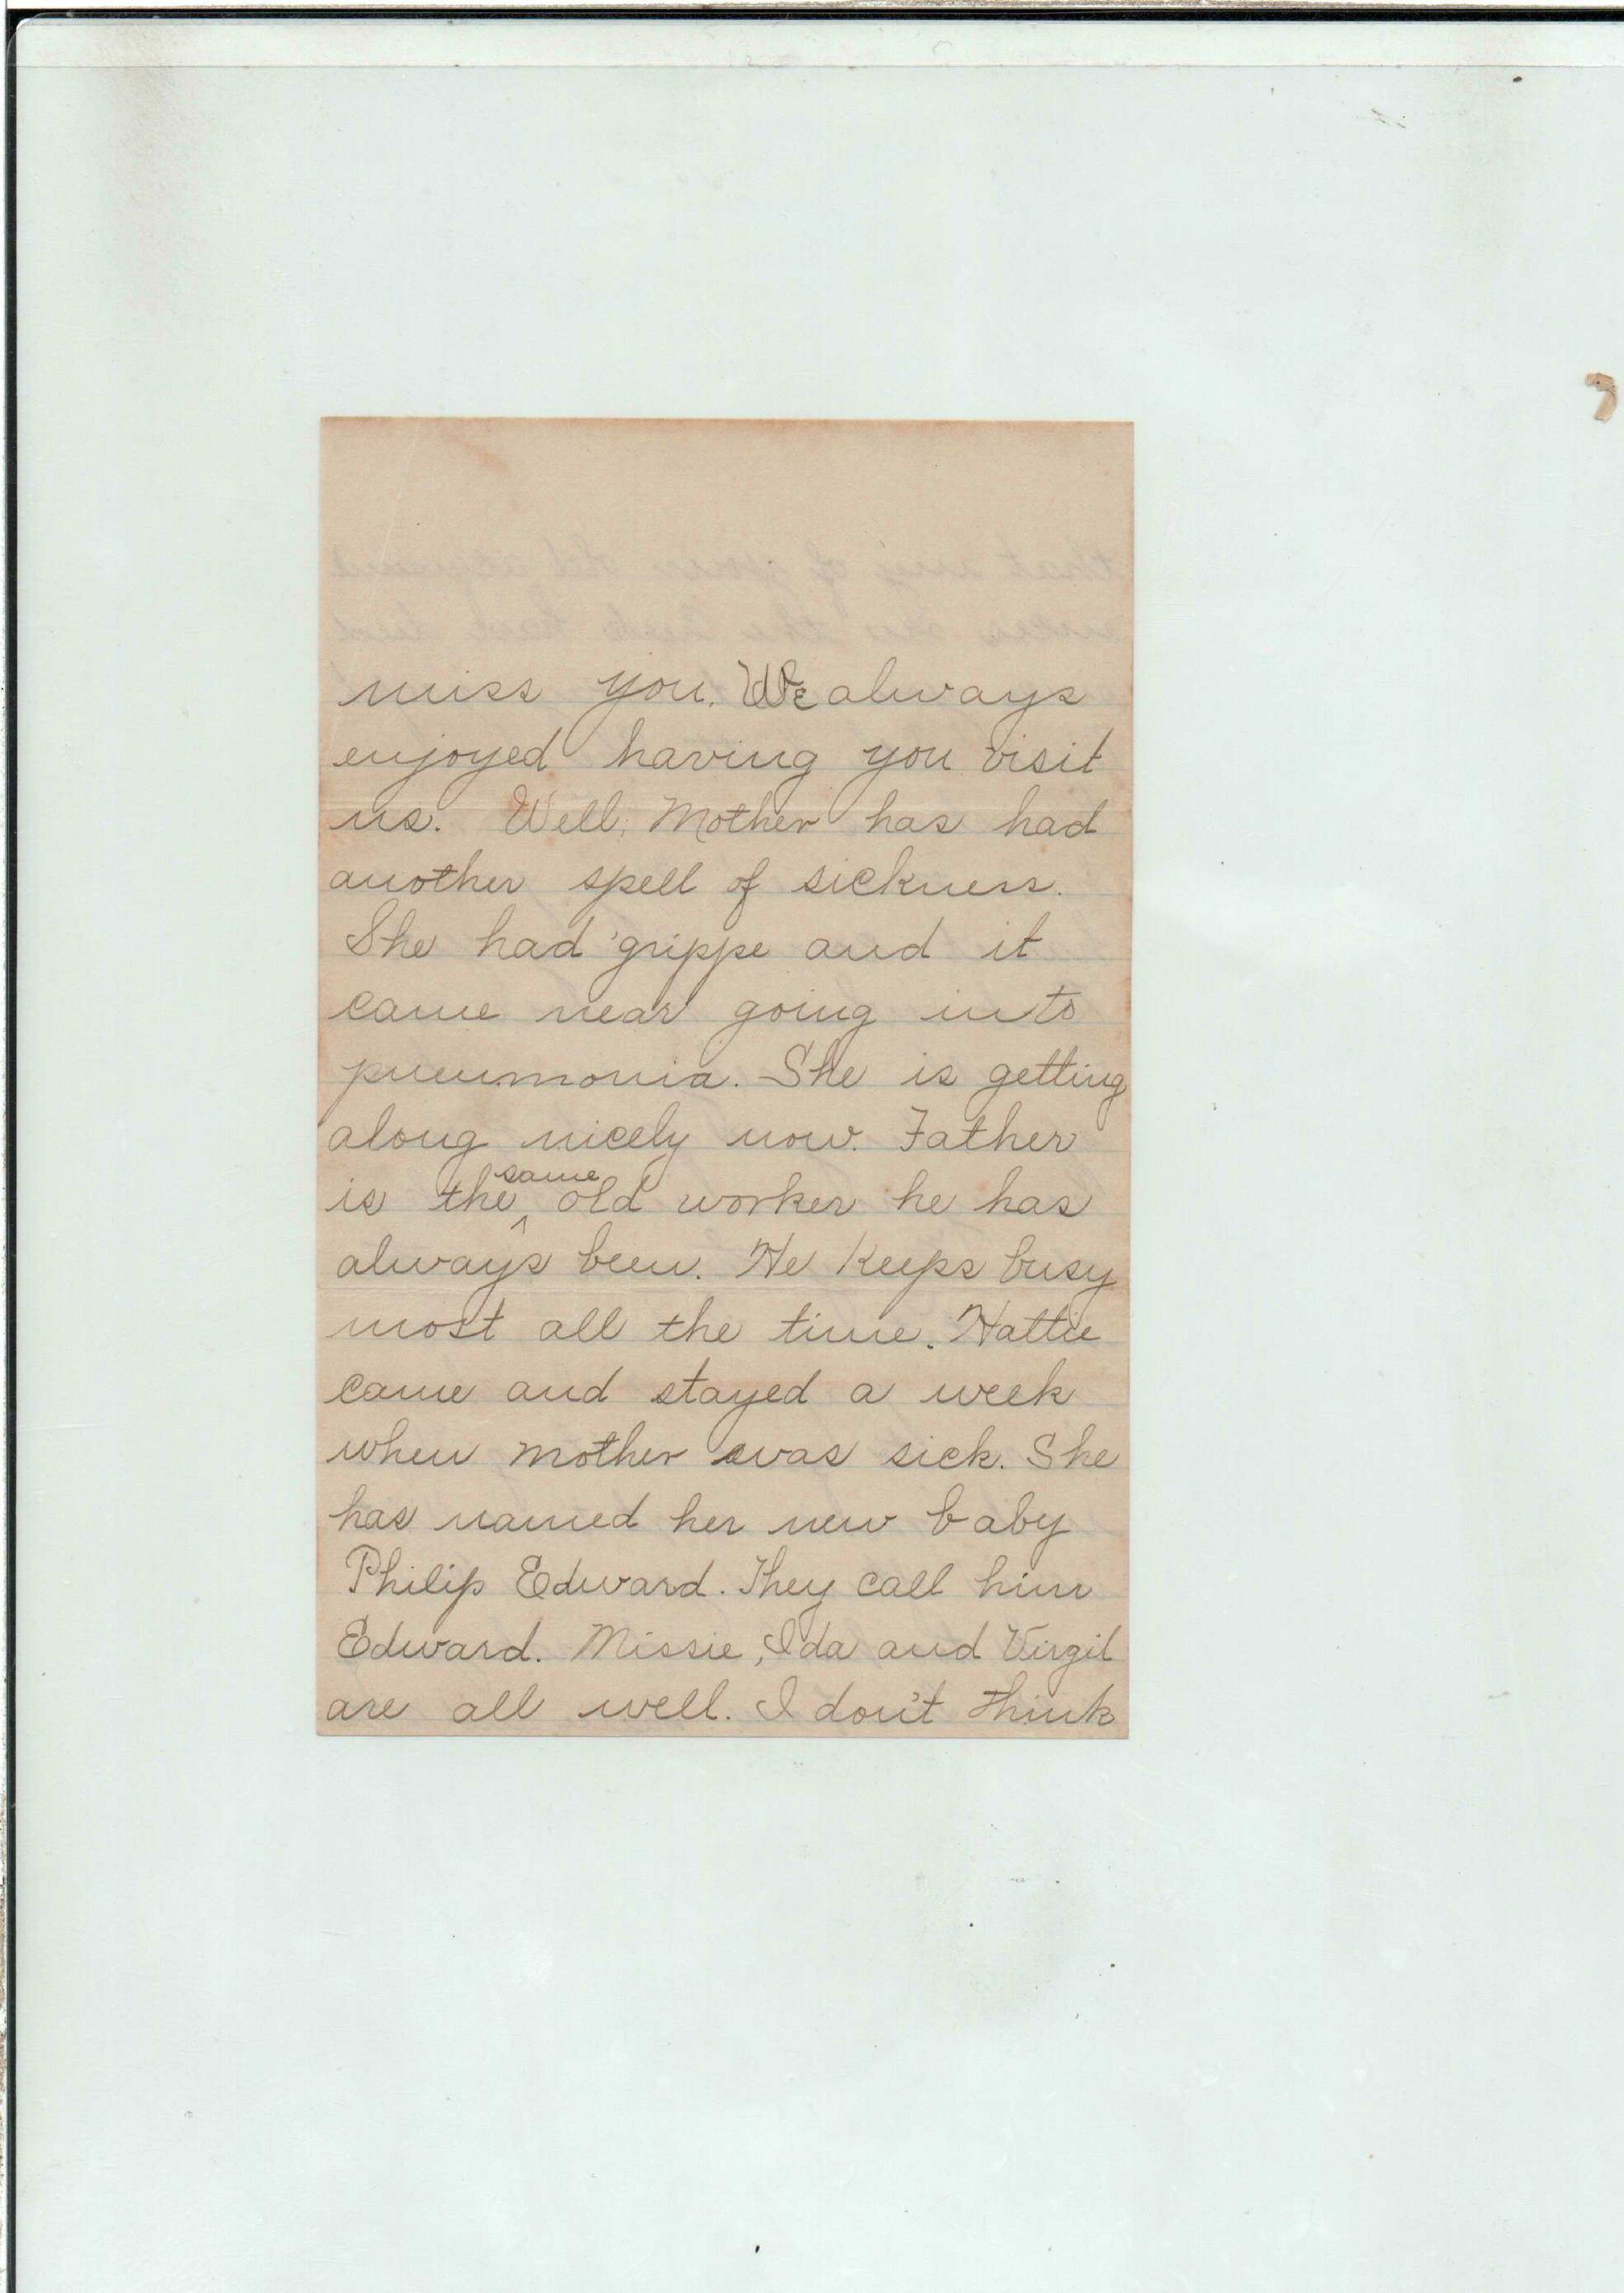 miss you. We always
enjoyed having you visit
us. Well, Mother has had
another spell of sickness.
She had 'grippe and it
came near going into
pneumonia. She is getting
along nicely now. Father
is the same old worker he has
always been. He Keeps busy
most all the time. Hattie
came and stayed a week
when mother was sick. She
has named her new baby
Philip Edward. They call him
Edward. Missie, Ida and Virgil
are all well. I don't think